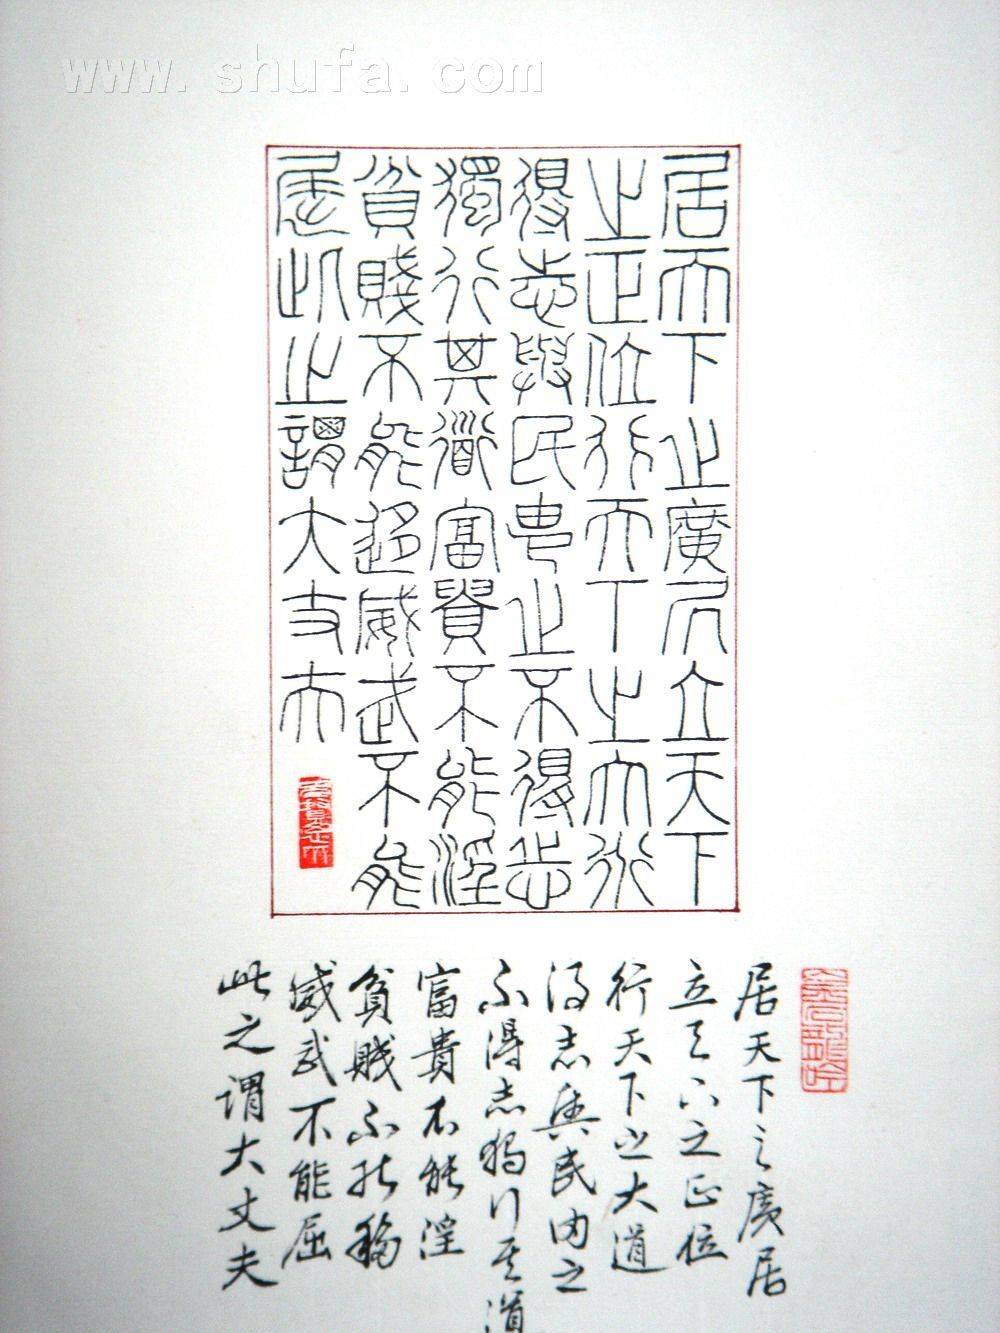 www.shufa.com
居天下之廣居立天下
之正位行天下之大道
得志與民由之不得志
獨行其道富貴不能淫
貧賤不能移威武不能
屈此之謂大丈夫
居天下之廣居
立天下之正位
行天下之大道
得志與民由之
不得志獨行其道
富貴不能淫
貧賤不能移
威武不能屈
此之謂大丈夫